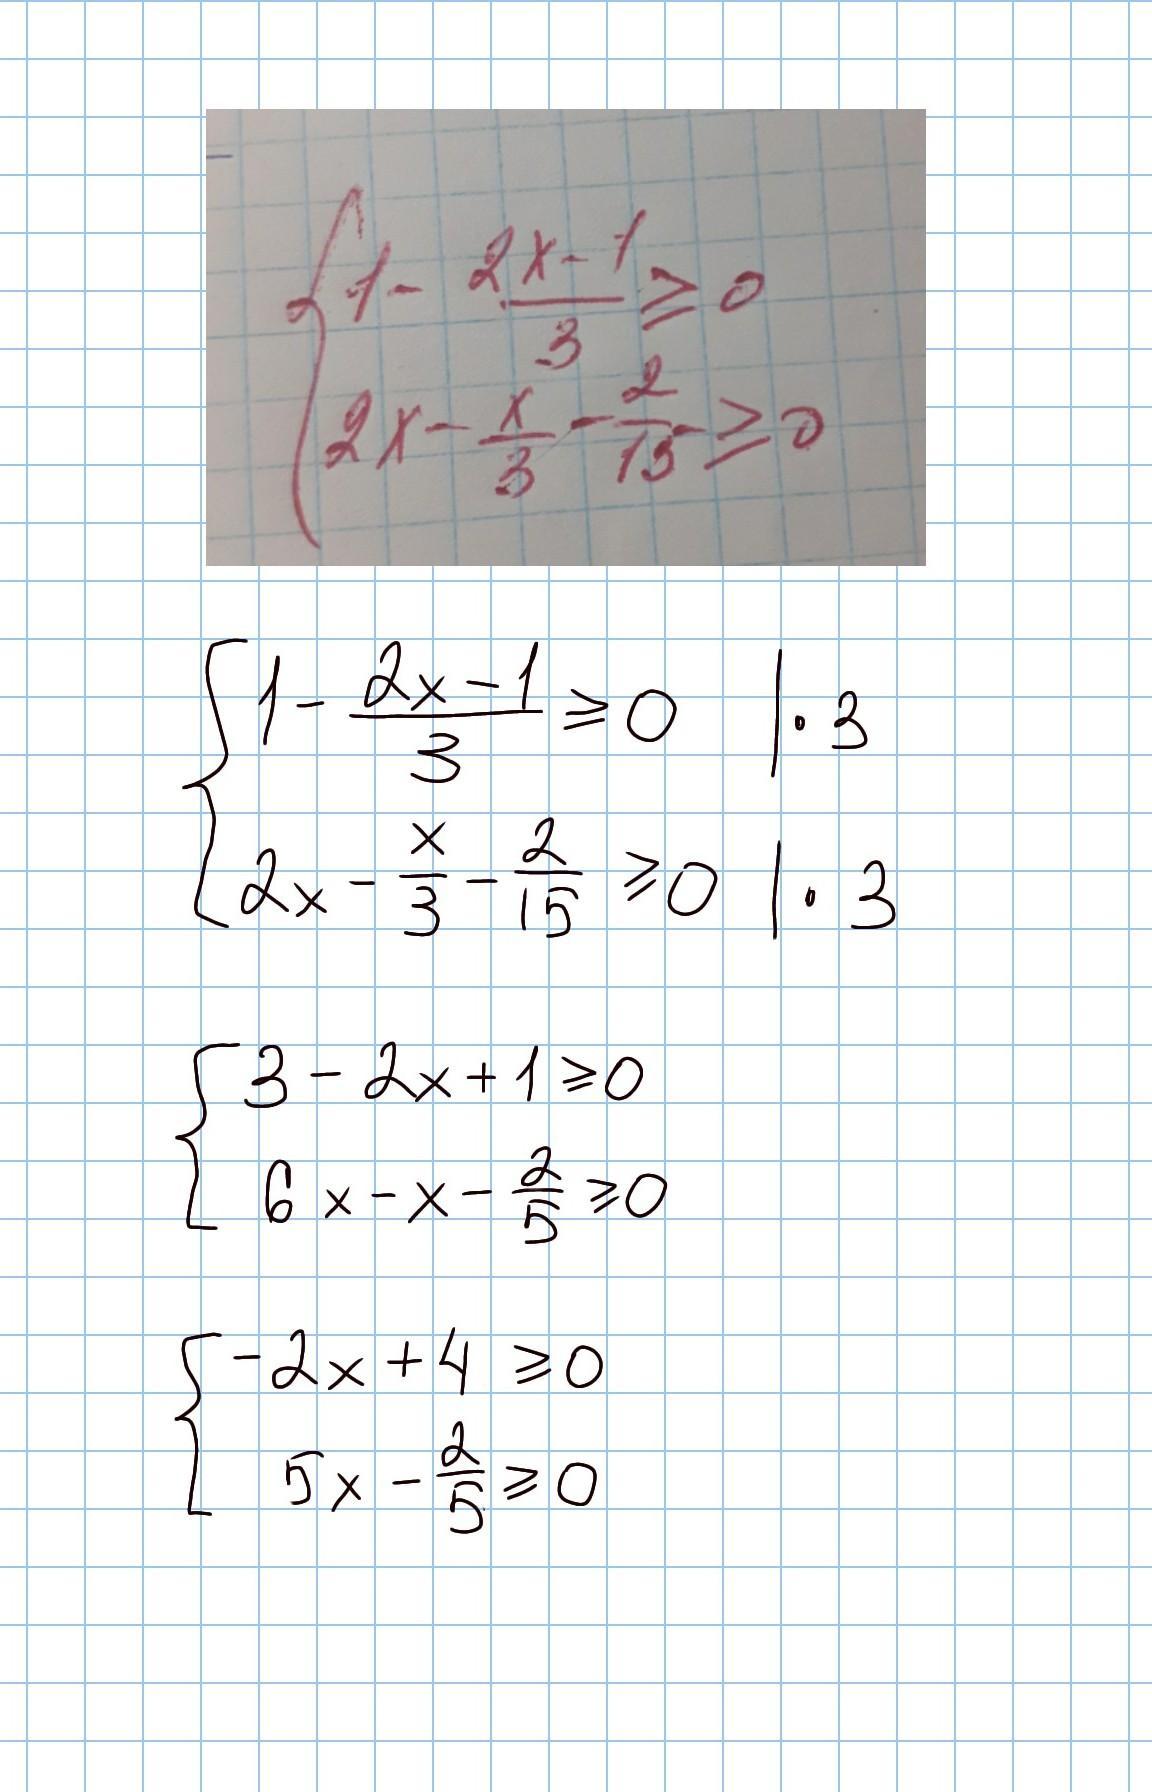 { 1 - (2x - 1)/3 ≥ 0
2x - x/3 - 2/15 ≥ 0
{ 1 - (2x - 1)/3 ≥ 0 | · 3
2x - x/3 - 2/15 ≥ 0 | · 3
{ 3 - 2x + 1 ≥ 0
6x - x - 2/5 ≥ 0
{ -2x + 4 ≥ 0
5x - 2/5 ≥ 0